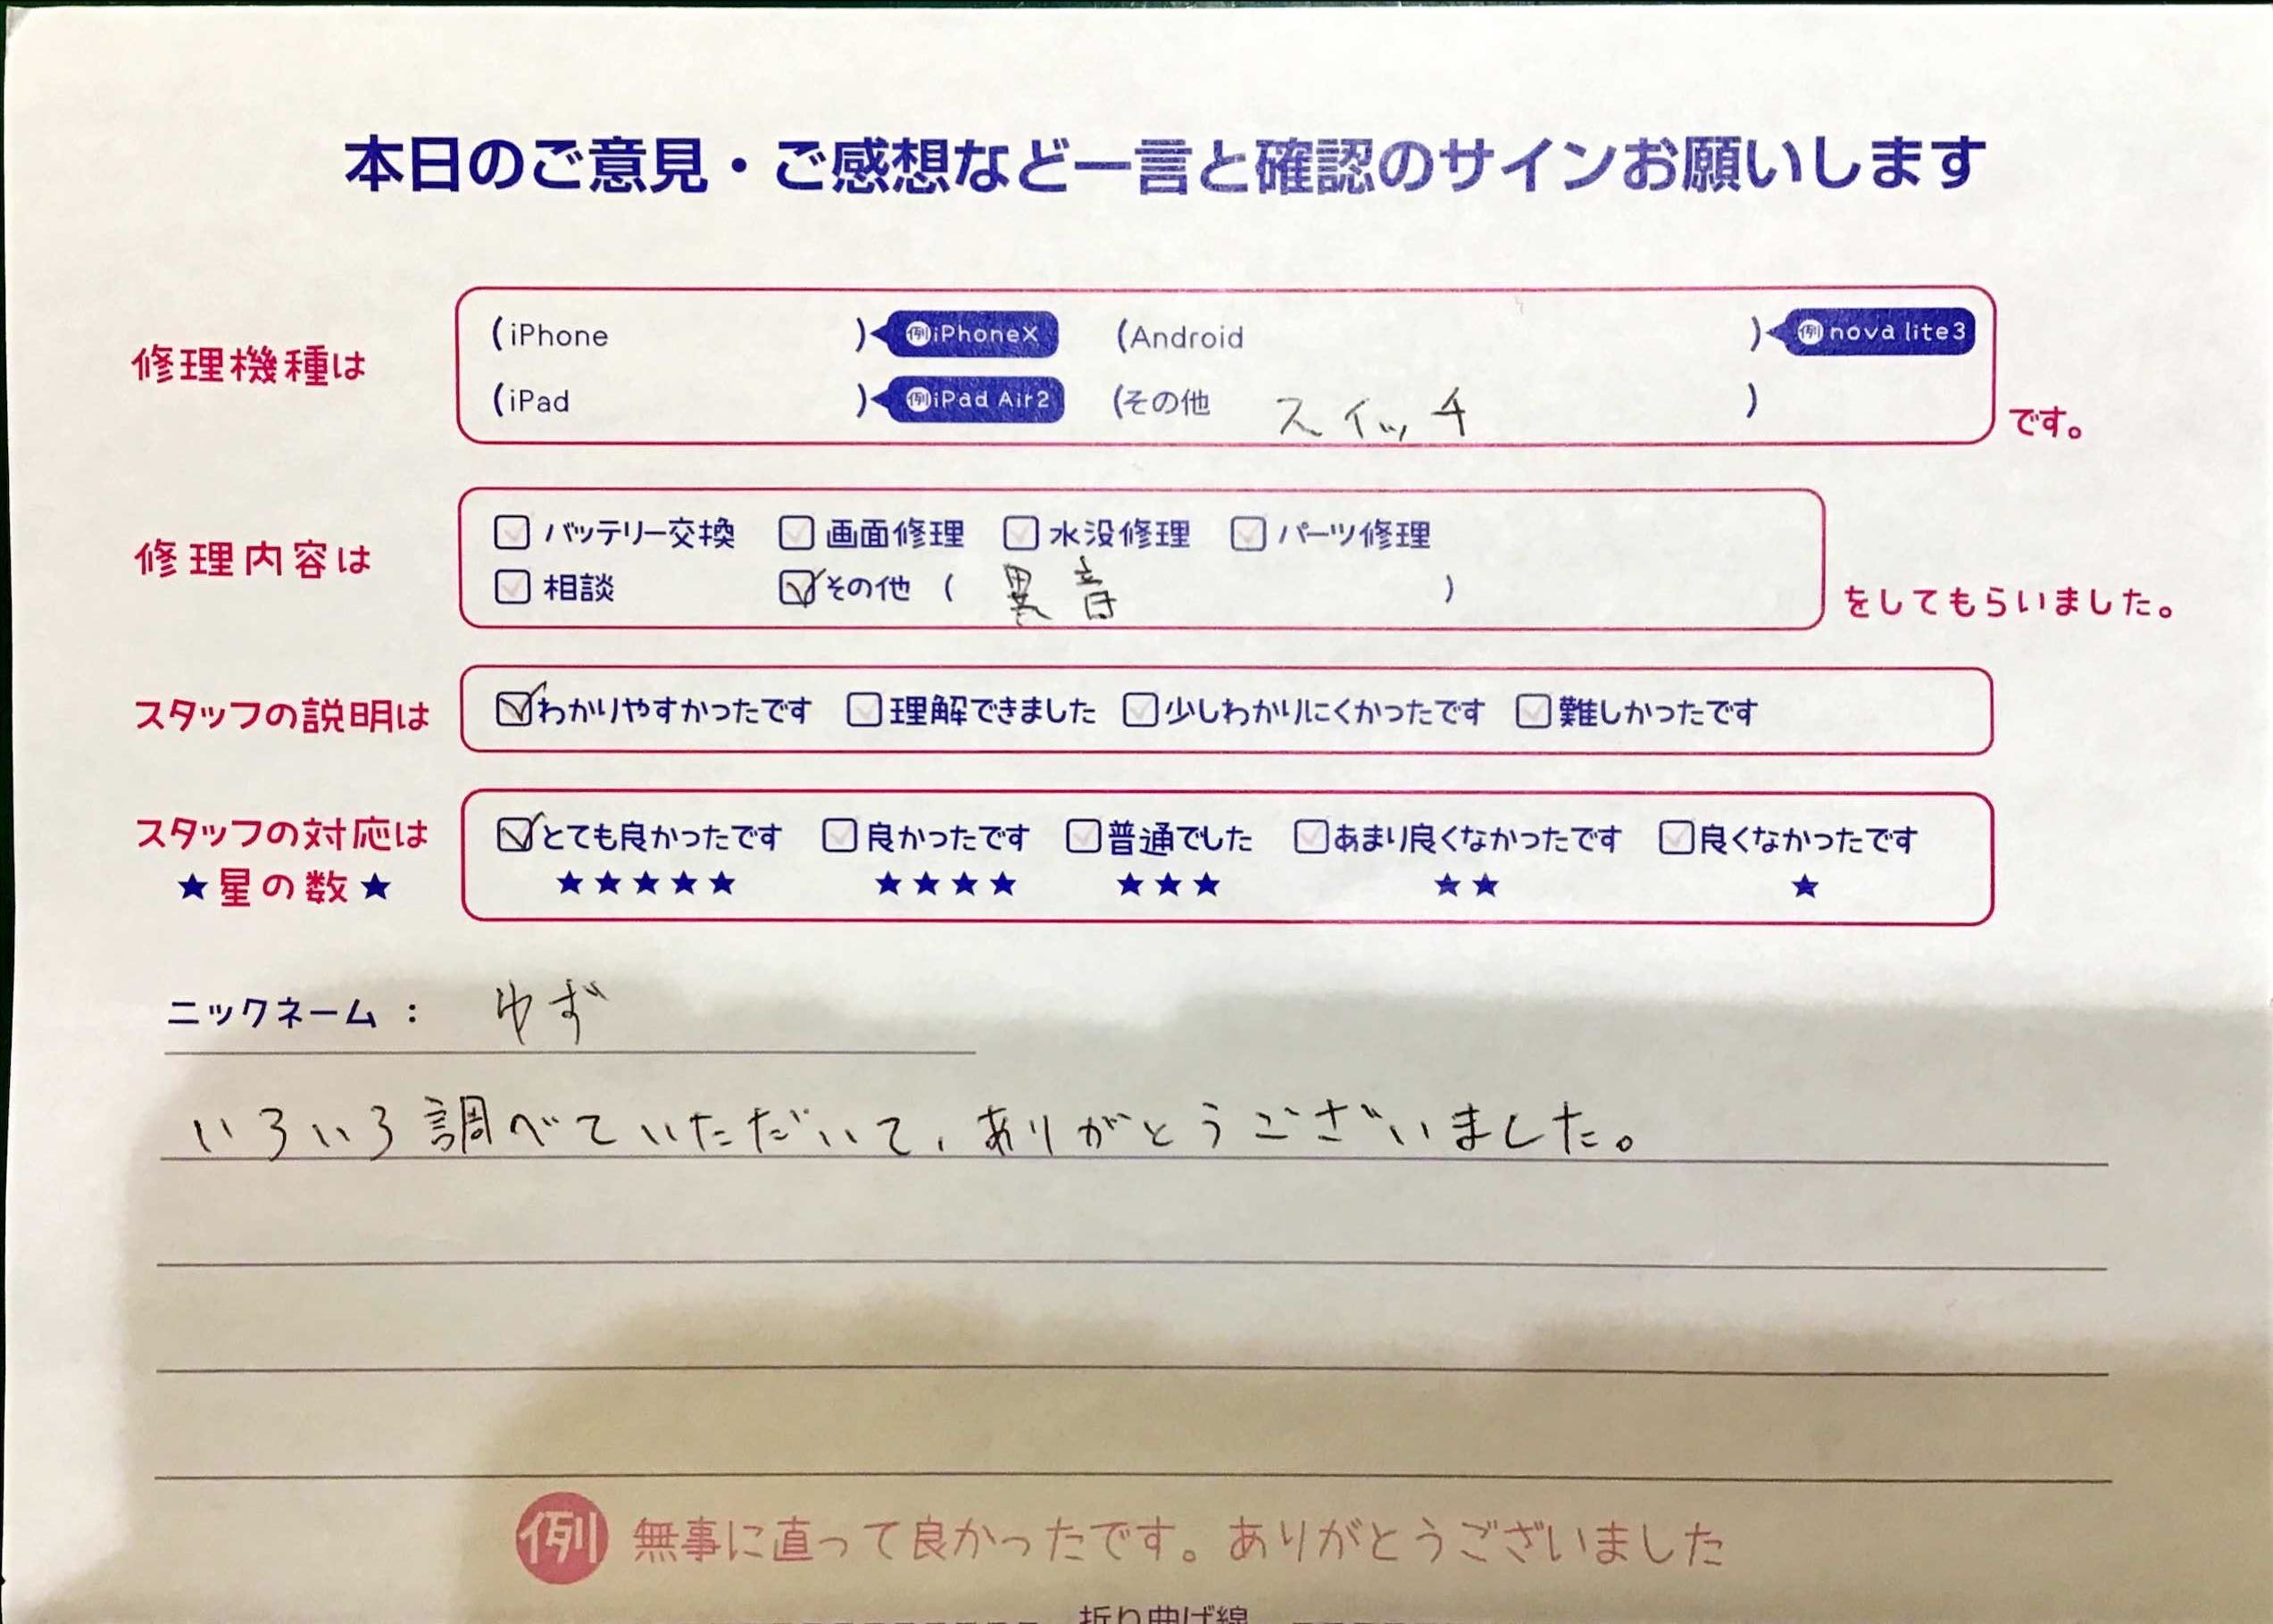 本日のご意見・ご感想など一言と確認のサインお願いします
修理機種は
(iPhone ) 例iPhoneX (Android ) 例nova lite3
(iPad ) 例iPad Air2 (その他 スイッチ ) です。
修理内容は
バッテリー交換 画面修理 水没修理 パーツ修理
相談 その他 ( 異音 ) をしてもらいました。
スタッフの説明は わかりやすかったです 理解できました 少しわかりにくかったです 難しかったです
スタッフの対応は とても良かったです 良かったです 普通でした あまり良くなかったです 良くなかったです
★星の数★ ★★★★★ ★★★★ ★★★ ★★ ★
ニックネーム： ゆず
いろいろ調べていただいて、ありがとうございました。
例 無事に直って良かったです。ありがとうございました
折り曲げ線